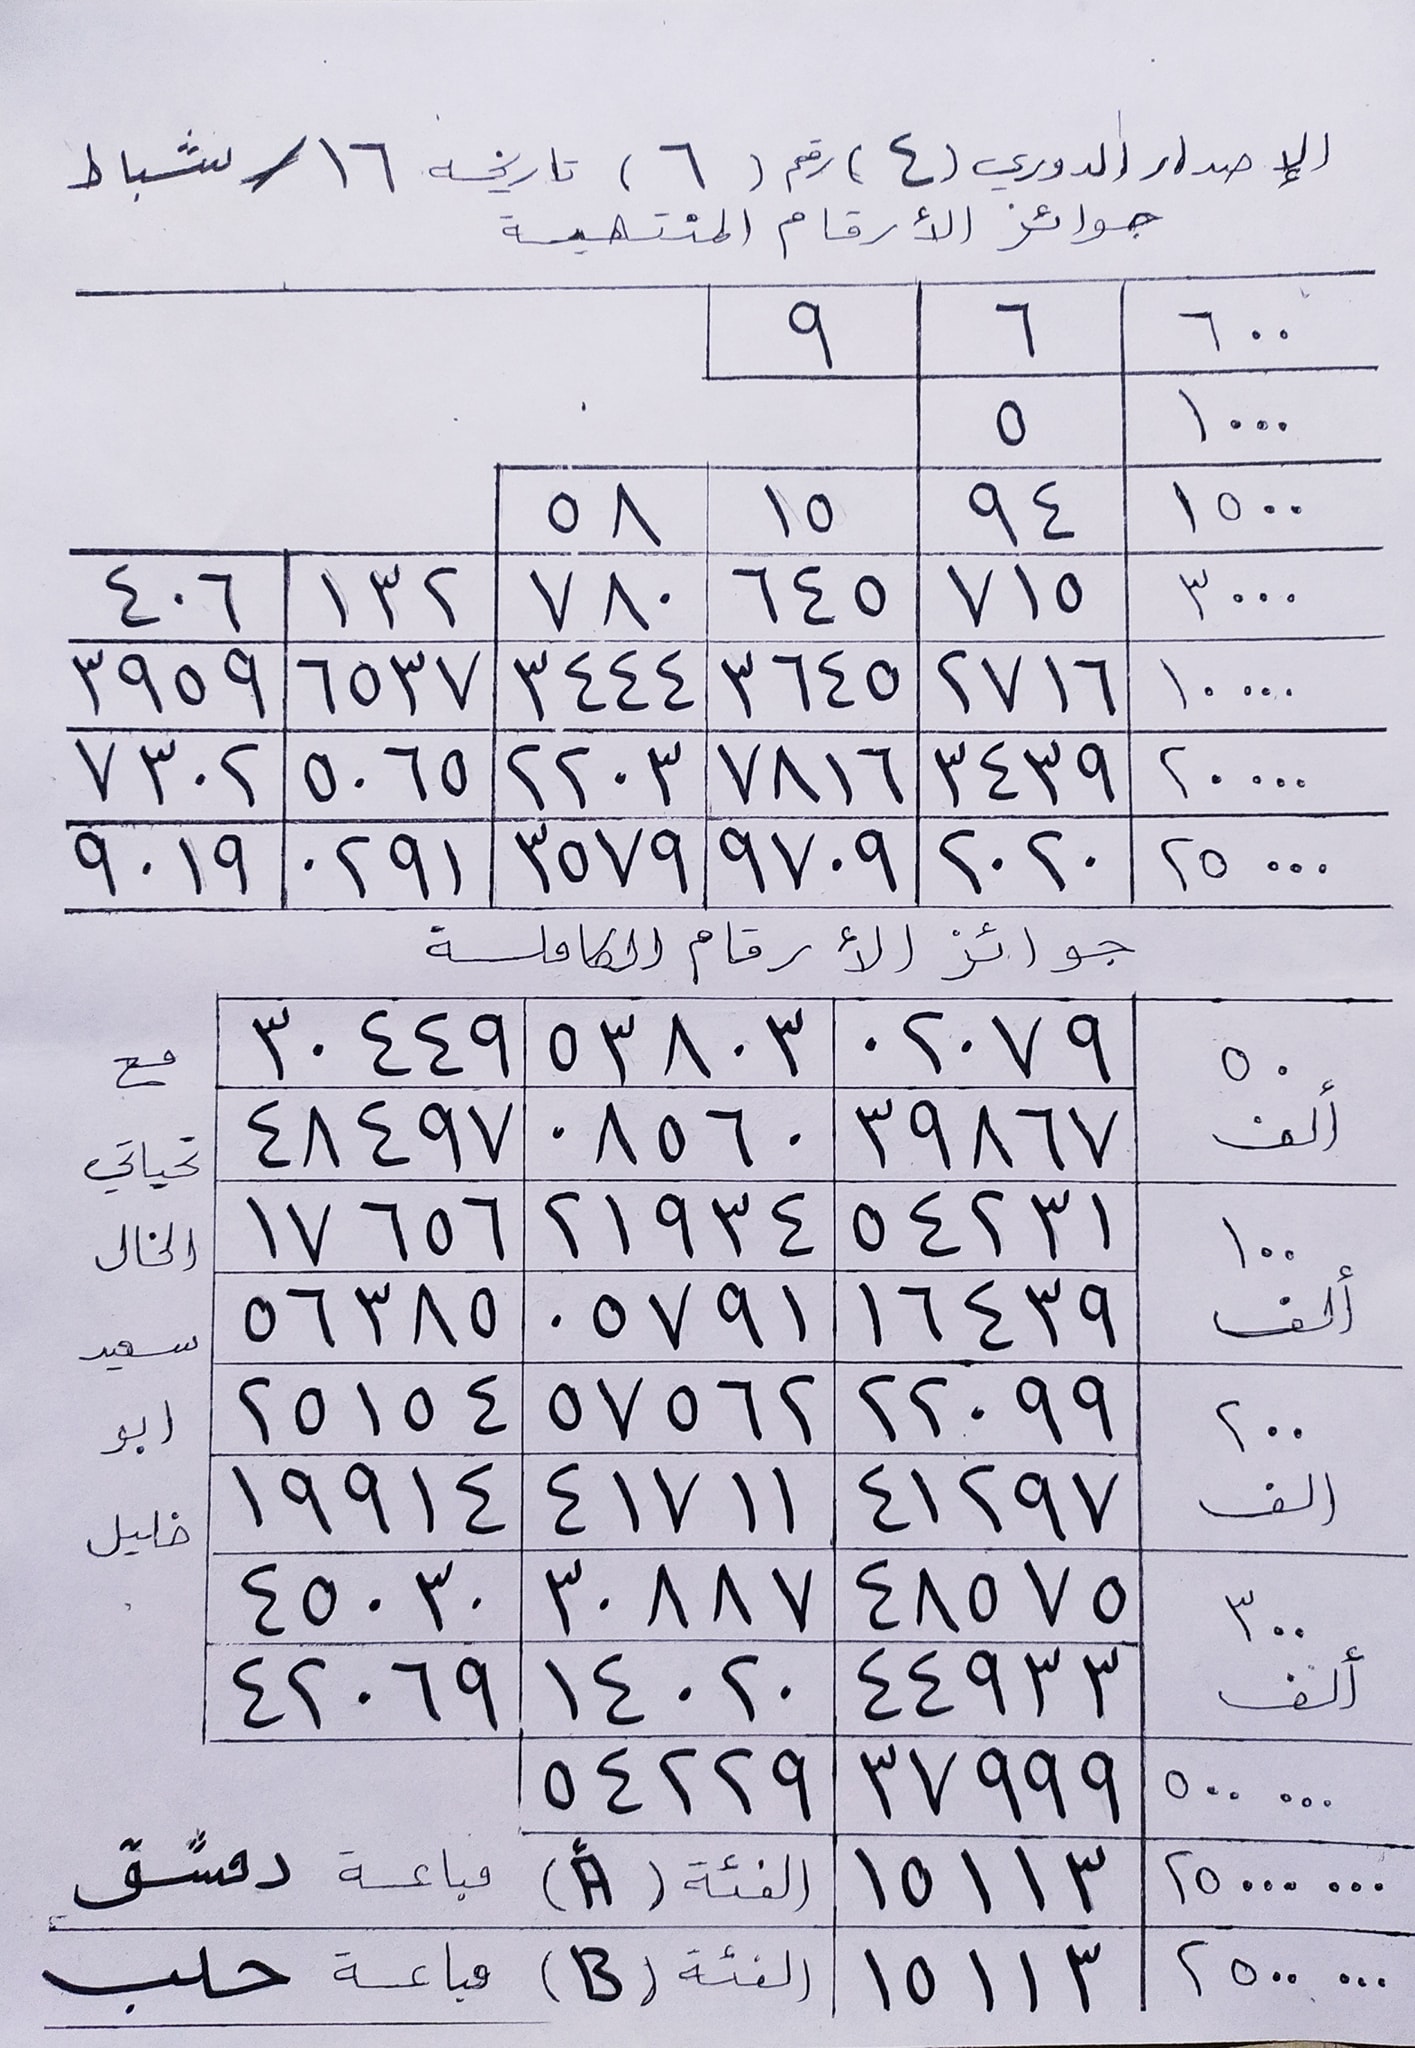 الإصدار الدوري (٤) رقم (٦) تاريخه ١٦/شباط
جوائز الأرقام المنتهية
٦٠٠ ٦ ٩
١٠٠٠ ٥
١٥٠٠ ٩٤ ١٥ ٥٨
٣٠٠٠ ٧١٥ ٦٤٥ ٧٨٠ ١٣٢ ٤٠٦
١٠٠٠٠ ٢٧١٦ ٣٦٤٥ ٣٤٤٤ ٦٥٣٧ ٣٩٥٩
٢٠٠٠٠ ٣٤٣٩ ٧٨١٦ ٢٢٠٣ ٥٠٦٥ ٧٣٠٢
٢٥٠٠٠ ٢٠٢٠ ٩٧٠٩ ٣٥٧٩ ٠٢٩١ ٩٠١٩
جوائز الأرقام الكاملة
٥٠ ألف ٠٢٠٧٩ ٥٣٨٠٣ ٣٠٤٤٩
٣٩٨٦٧ ٠٨٥٦٠ ٤٨٤٩٧
١٠٠ ألف ٥٤٢٣١ ٢١٩٣٤ ١٧٦٥٦
١٦٤٣٩ ٠٥٧٩١ ٥٦٣٨٥
٢٠٠ الف ٢٢٠٩٩ ٥٧٥٦٢ ٢٥١٥٤
٤١٢٩٧ ٤١٧١١ ١٩٩١٤
٣٠٠ ألف ٤٨٥٧٥ ٣٠٨٨٧ ٤٥٠٣٠
٤٤٩٣٣ ١٤٠٢٠ ٤٢٠٦٩
٥٠٠٠٠٠ ٣٧٩٩٩ ٥٤٢٢٩
٢٥٠٠٠٠٠٠ ١٥١١٣ الفئة (A) مباعة دمشق
٢٥٠٠٠٠٠ ١٥١١٣ الفئة (B) مباعة حلب
مع
تحياتي
الخال
سعيد
ابو
خليل